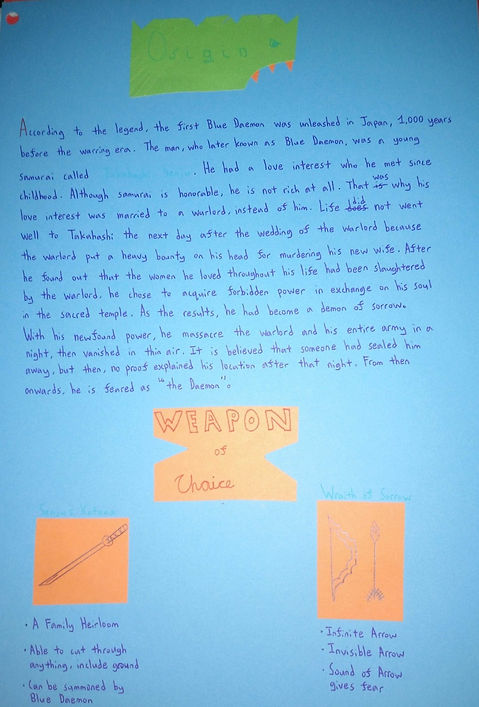 Origin
According to the legend, the first Blue Daemon was unleashed in Japan, 1,000 years
before the warring era. The man, who later known as Blue Daemon, was a young
samurai called Takahashi Senju. He had a love interest who he met since
childhood. Although samurai is honorable, he is not rich at all. That is was why his
love interest was married to a warlord, instead of him. Life does did not went
well to Takahashi: the next day after the wedding of the warlord because
the warlord put a heavy bounty on his head for murdering his new wife. After
he found out that the women he loved throughout his life had been slaughtered
by the warlord, he chose to acquire forbidden power in exchange on his soul
in the sacred temple. As the results, he had become a demon of sorrow.
With his newfound power, he massacre the warlord and his entire army in a
night, then vanished in thin air. It is believed that someone had sealed him
away, but then, no proof explained his location after that night. From then
onwards, he is feared as "the Daemon".
WEAPON
of
Choice
Senju's Katana
• A Family Heirloom
• Able to cut through
anything, include ground
• Can be summoned by
Blue Daemon
Wraith of Sorrow
• Infinite Arrow
• Invisible Arrow
• Sound of Arrow
gives fear